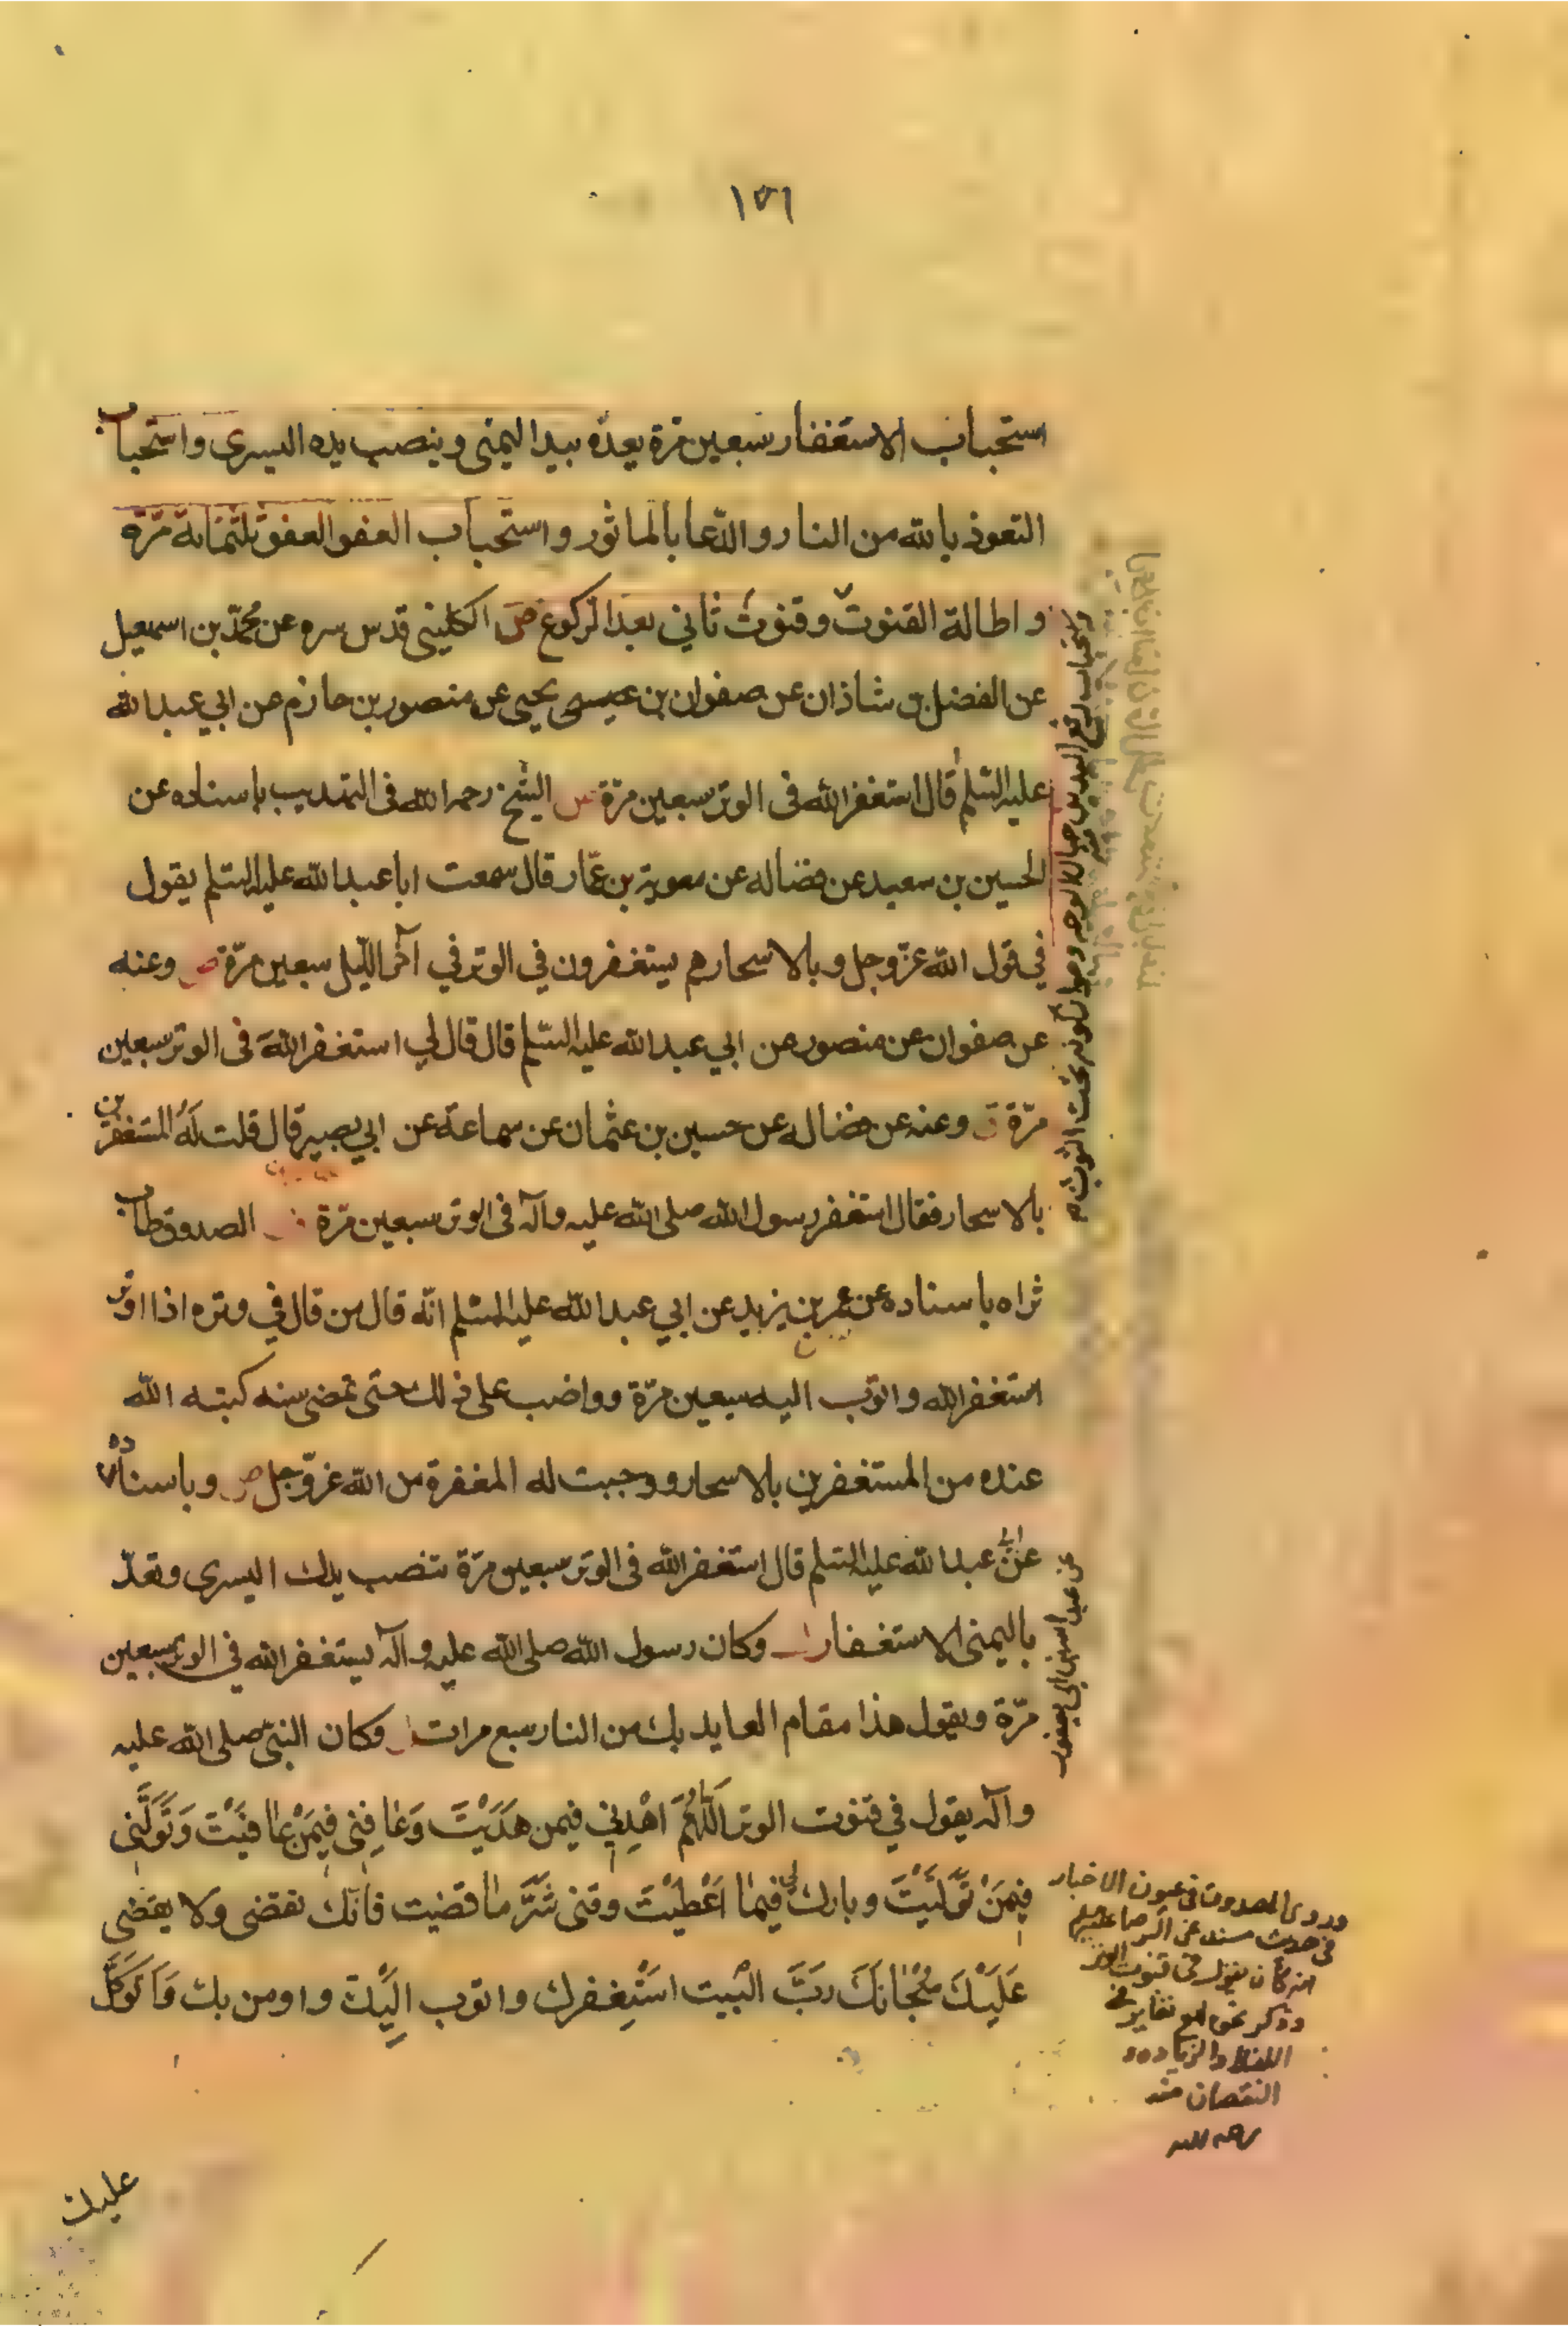 ١٧٦
استحباب الاستغفار سبعين مرة يعدّه بيد اليمنى وينصب يده اليسرى واستحباب
التعوذ بالله من النار والدّعا بالماثور واستحباب العفو العفو ثلثمائة مرّة
واطالة القنوت وقنوت ثاني بعد الركوع ص الكليني قدس سره عن محمّد بن اسمعيل
عن الفضل بن شاذان عن صفوان بن عيسى يحيى عن منصور بن حازم عن ابي عبد الله
عليه السّلم قال استغفر الله فى الوتر سبعين مرّة س الشيخ رحمه الله فى التهذيب باسناده عن
الحسين بن سعيد عن فضاله عن معوية بن عمّار قال سمعت ابا عبد الله عليه السلم يقول
في قول الله عزّ وجل وبالاسحارهم يستغفرون في الوتر في آخر اللّيل سبعين مرّة ص وعنه
عن صفوان عن منصور عن ابي عبد الله عليه السّلم قال قال لي استغفر اللهَ فى الوتر سبعين
مرّة وعنه عن فضاله عن حسين بن عثمان عن سماعة عن ابي بصير قال قلت لَهُ المستغفرين
بالاسحار فقال استغفر رسول الله صلى الله عليه وآله فى الوتر سبعين مرّة الصدوق طاب
ثراه باسناده عن عمر بن يزيد عن ابي عبد الله عليه السّلم انّه قال من قال في وتره اذا اوتر
استغفر الله واتوب اليه سبعين مرّة وواضب على ذلك حتى تمضى سنه كتبه الله
عنده من المستغفرين بالاسحار ووجبت له المغفرة من الله عزّ وجل ص وباسناده
عن ابي عبد الله عليه السّلم قال استغفر الله فى الوتر سبعين مرّة تنصب يدك اليسرى وتعدّ
باليمنى الاستغفار وكان رسول الله صلى الله عليه وآله يستغفر الله في الوتر سبعين
مرّة ويقول هذا مقام العايذ بك من النار سبع مرات وكان النبيّ صلى الله عليه
وآله يقول في قنوت الوتر اَللّهُمَّ اهْدِنِي فيمن هَدَيْتَ وَعَافِنِى فِيمَنْ عَافَيْتَ وَتَوَلَّنِى
فِيمَنْ تَوَلَّيْتَ وبارك لي فيما اَعْطَيْتَ وقنى شَرَّ ما قضيت فانّك تقضى ولا يقضى
عَلَيْكَ سُبْحانَكَ رَبَّ البَيت اسْتَغفرك واتوب الَيْكَ واومن بك وَاَتَوَكَّل
عليك
واستحباب رفع اليدين حيال الوجه وجواز كونه تحت الثوب
عن عبد الله بن ابي يعفور
وروى الصدوق في عيون الاخبار
في حديث مسند عن الرضا عليه السلم
انه كان يقول في قنوت الوتر
وذكر نحوه مع تغاير في
اللفظ والزيادة و
النقصان منه
رحمه الله